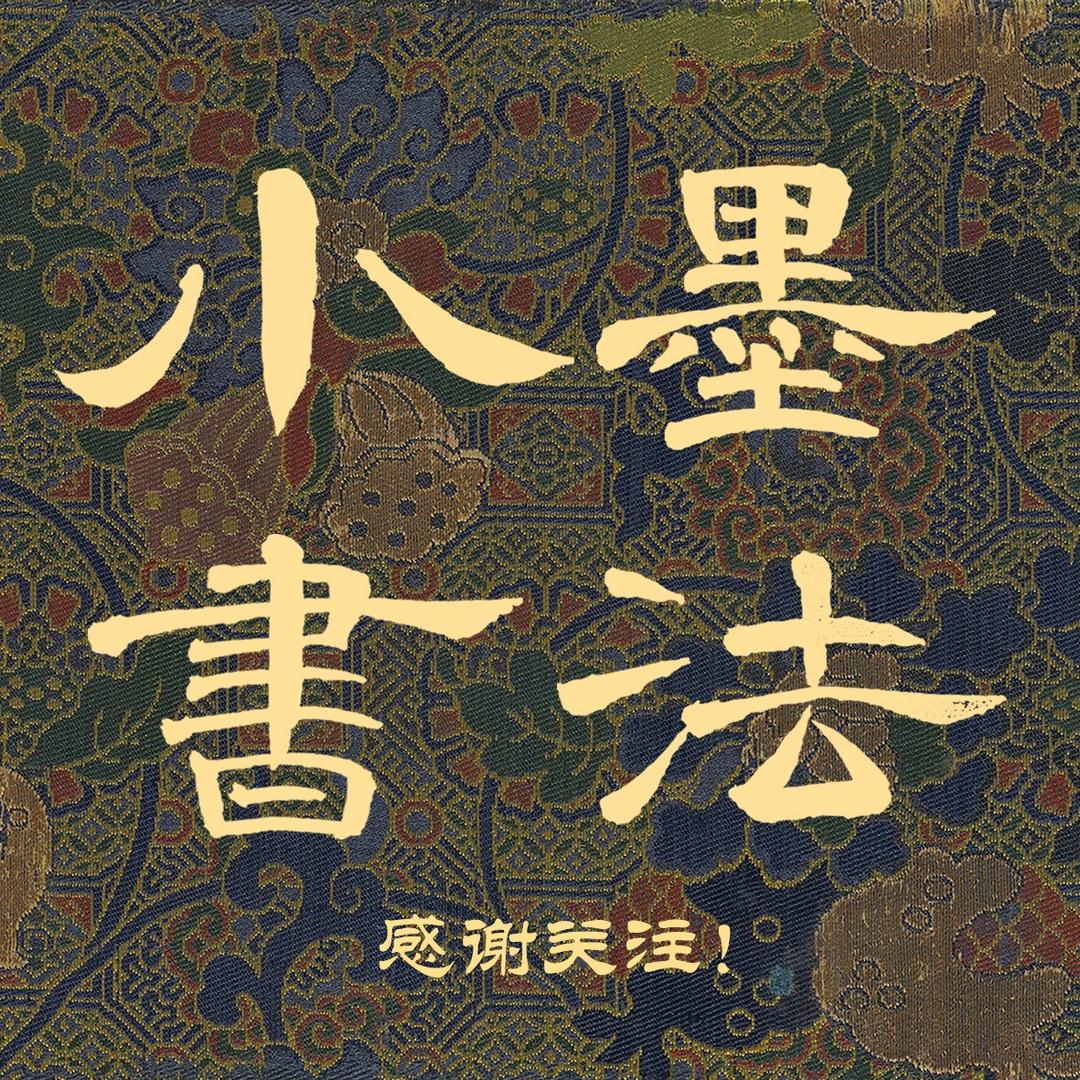 小墨
書法
感谢关注!